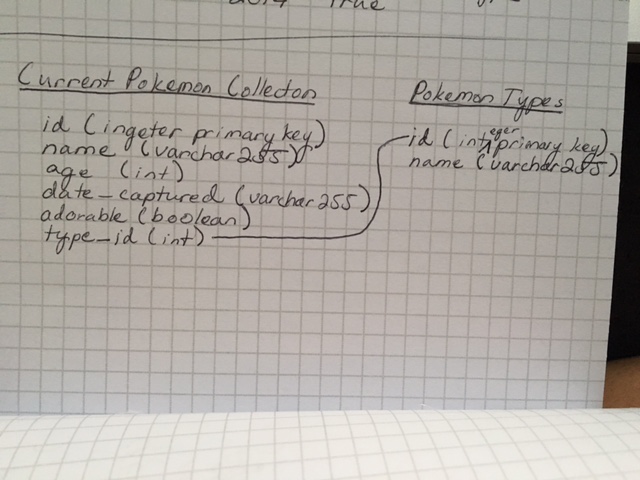 True
Current Pokemon Collecton
id (ingeter primary key)
name (varchar255)
age (int)
date_captured (varchar 255)
adorable (boolean)
type_id (int)
Pokemon Types
id (integer primary key)
name (varchar255)